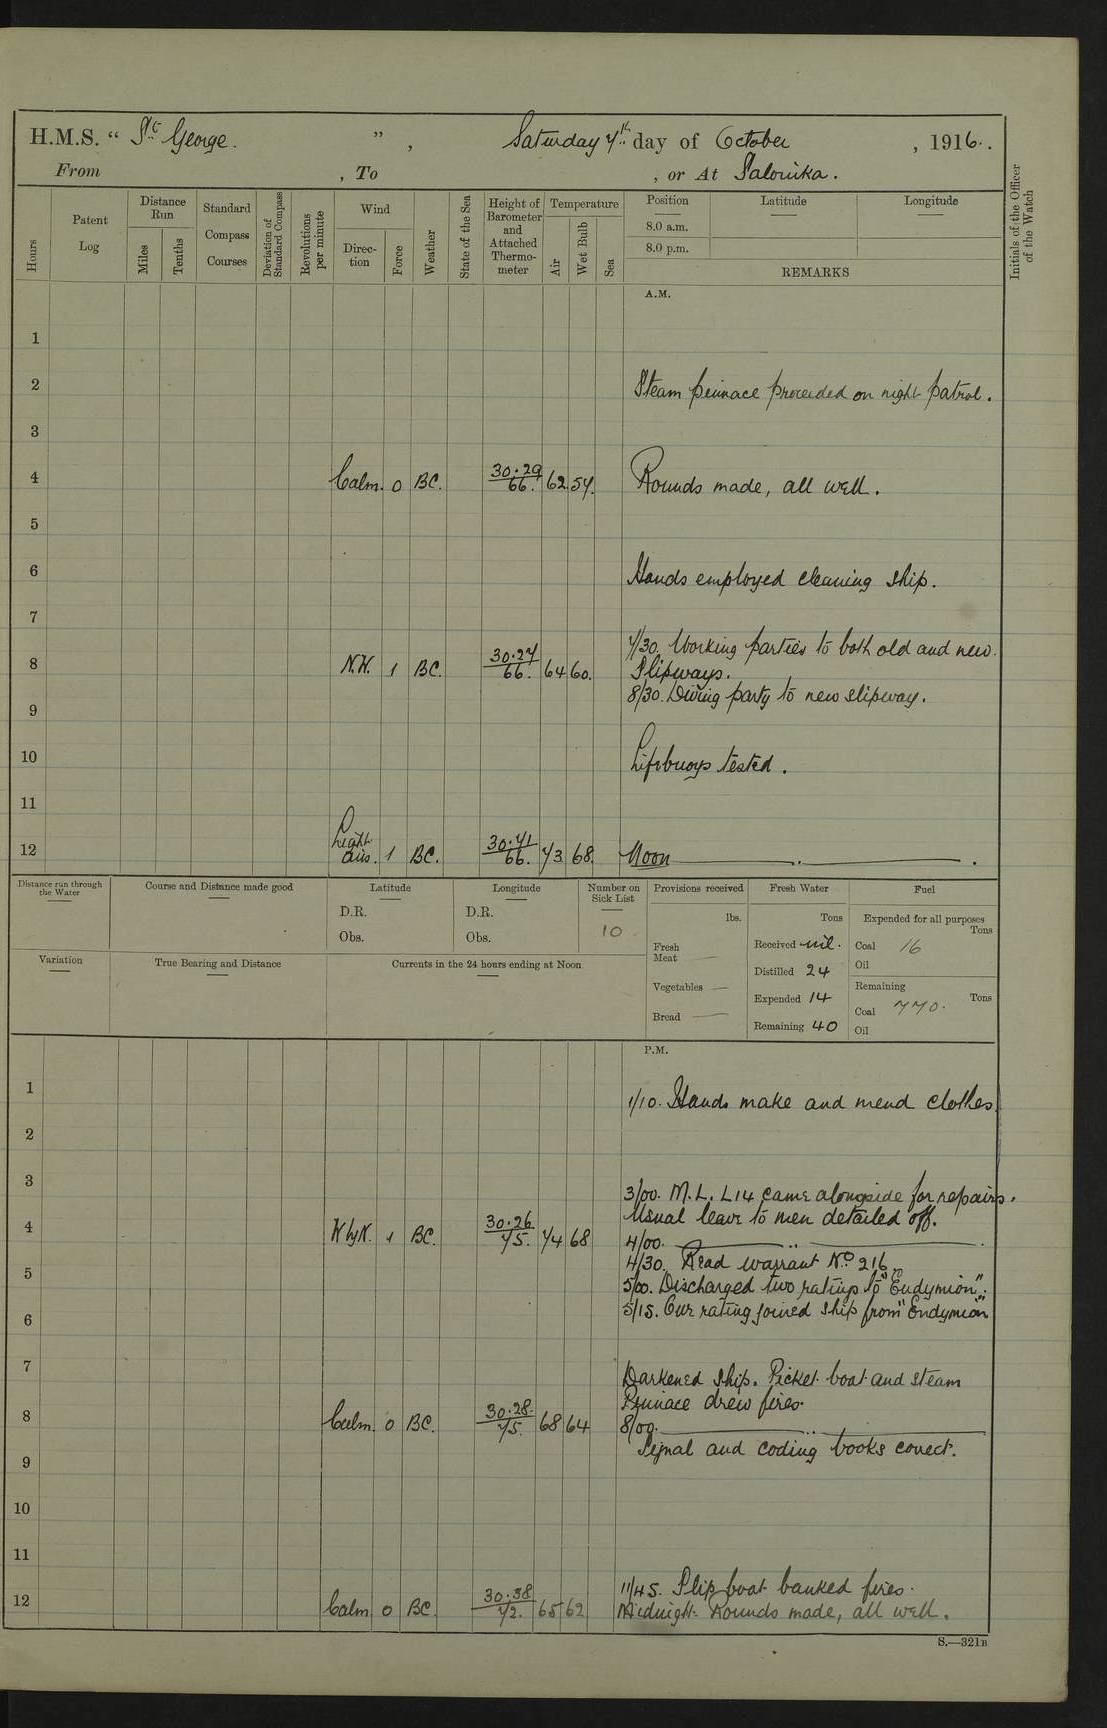 H.M.S. “ St. George. ” , Saturday 7th day of October , 1916.
From , To , or At Salonika.
Hours
Patent Log
Distance Run
Miles
Tenths
Standard Compass Courses
Deviation of Standard Compass
Revolutions per minute
Wind
Direc-tion
Force
Weather
State of the Sea
Height of Barometer and Attached Thermo-meter
Temperature
Air
Wet Bulb
Sea
Position Latitude Longitude
8.0 a.m.
8.0 p.m.
REMARKS
Initials of the Officer of the Watch
A.M.
1
2 Steam pinnace proceeded on night patrol.
3
4 Calm. 0 BC. 30.29/66. 62. 57. Rounds made, all well.
5
6 Hands employed cleaning ship.
7
7/30. Working parties to both old and new
8 N.W. 1 BC. 30.27/66. 64 60. Slipways.
8/30. Diving party to new slipway.
9
10 Lifebuoys tested.
11
12 Light airs. 1 BC. 30.71/66. 73 68. Noon
Distance run through the Water
Course and Distance made good
Latitude
D.R.
Obs.
Longitude
D.R.
Obs.
Number on Sick List
10
Provisions received
lbs.
Fresh Meat
Vegetables
Bread
Fresh Water
Tons
Received nil.
Distilled 24
Expended 14
Remaining 40
Fuel
Expended for all purposes
Tons
Coal 16
Oil
Remaining
Tons
Coal 770.
Oil
Variation
True Bearing and Distance
Currents in the 24 hours ending at Noon
P.M.
1 1/10. Hands make and mend clothes.
2
3 3/00. M.L. L14 came alongside for repairs.
Usual leave to men detailed off.
4 W by N. 1 BC. 30.26/75. 74 68 4/00.
4/30. Read warrant No. 216.
5 5/00. Discharged two ratings to "Endymion".
5/15. One rating joined ship from "Endymion"
6
7 Darkened ship. Picket boat and steam
Pinnace drew fires.
8 Calm. 0 BC. 30.28./75. 68 64 8/00.
Signal and coding books correct.
9
10
11
11/45. Slip boat banked fires.
12 Calm 0 BC. 30.38/72. 65 62 Midnight. Rounds made, all well.
S.—321B